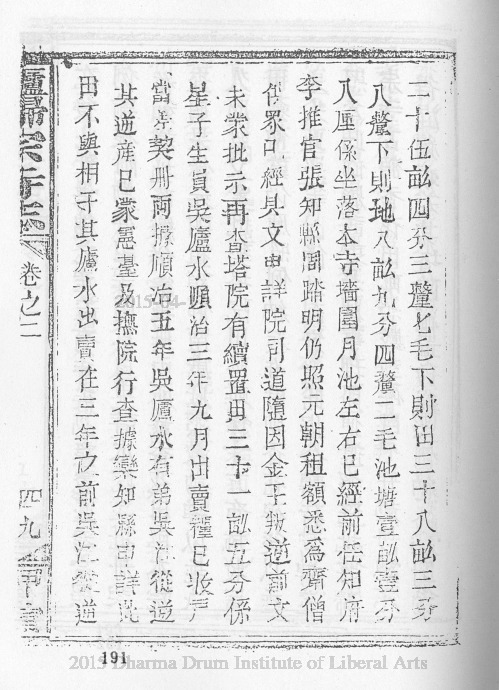 二十伍畝四分三釐七毛下則田三十八畝三分
八釐下則地八畝九分四釐二毛池塘壹畝壹分
八厘係坐落本寺墻圍月池左右已經前任知府
李推官張知縣周踏明仍照元朝租額悉爲齋僧
供眾已經具文申詳院司道隨因金王叛逆前文
未蒙批示再查塔院有續置田三十一畝五分係
星子生員吳廬水順治三年九月出賣糧已收戶
當差契冊兩據順治五年吳廬水有弟吳江從逆
其逆產已蒙憲臺及撫院行查據欒知縣申詳此
田不與相干其廬水出賣在三年之前吳江從逆
廬歸宗寺志
卷之二
四九
191
2015 Dharma Drum Institute of Liberal Arts